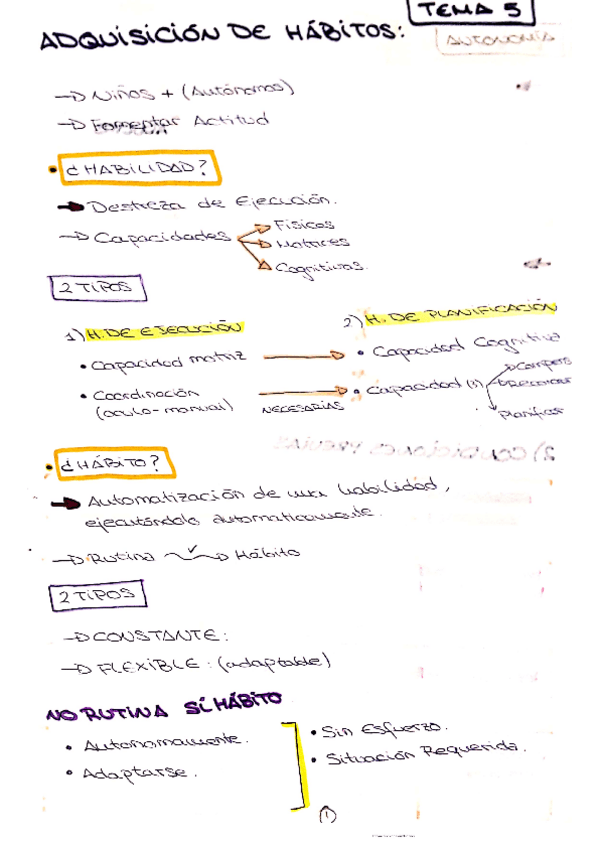 TEMA 5
ADQUISICIÓN DE HÁBITOS:
AUTONOMÍA
→ Niños + (Autónomos)
→ Fomentar Actitud
• ¿HABILIDAD?
→ Destreza de Ejecución.
→ Capacidades → Físicas
→ Motrices
→ Cognitivas.
2 TIPOS
1) H. DE EJECUCIÓN
2) H. DE PLANIFICACIÓN
• Capacidad motriz → • Capacidad Cognitiva
• Coordinación → • Capacidad
(oculo-manual) NECESARIAS
Planificar
• ¿HÁBITO?
→ Automatización de una habilidad,
ejecutándola automáticamente.
→ Rutina → Hábito
2 TIPOS
→ CONSTANTE:
→ FLEXIBLE: (adaptable)
NO RUTINA SÍ HÁBITO
• Autónomamente. • Sin Esfuerzo.
• Adaptarse. • Situación Requerida.
1